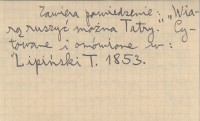 Zawiera powiedzenie: "Wia-
rą ruszyć można Tatry." Cy-
towane i omówione w:
Lipiński T. 1853.